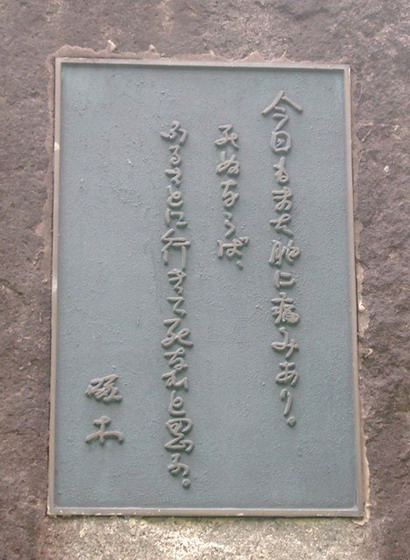 今日もまた胸に痛みあり。
死ぬならば、
ふるさとに行きて死なむと思ふ。
啄木